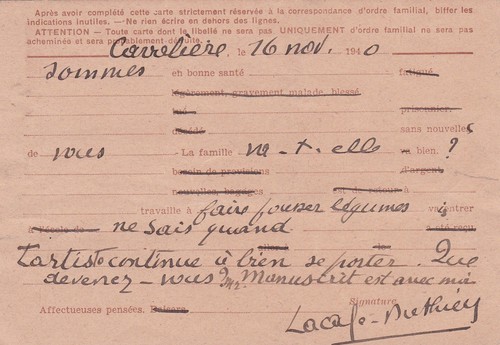 Après avoir complété cette carte strictement réservée à la correspondance d'ordre familial, biffer les
indications inutiles. — Ne rien écrire en dehors des lignes.
ATTENTION — Toute carte dont le libellé ne sera pas UNIQUEMENT d'ordre familial ne sera pas
acheminée et sera probablement détruite.
Cavalière, le 16 nov. 1940
sommes en bonne santé fatigué
légèrement, gravement malade, blessé
tué prisonnier
décédé sans nouvelles
de vous - La famille va-t-elle va bien. ?
besoin de provisions d'argent
nouvelles, bagages est de retour à
travaille à faire pousser légumes va entrer
à l'école de ne sais quand a été reçu
L'artiste continue à bien se porter. Que
devenez-vous ? Manuscrit est avec moi
Affectueuses pensées. Baisers. Signature
Lacaze-Duthiers